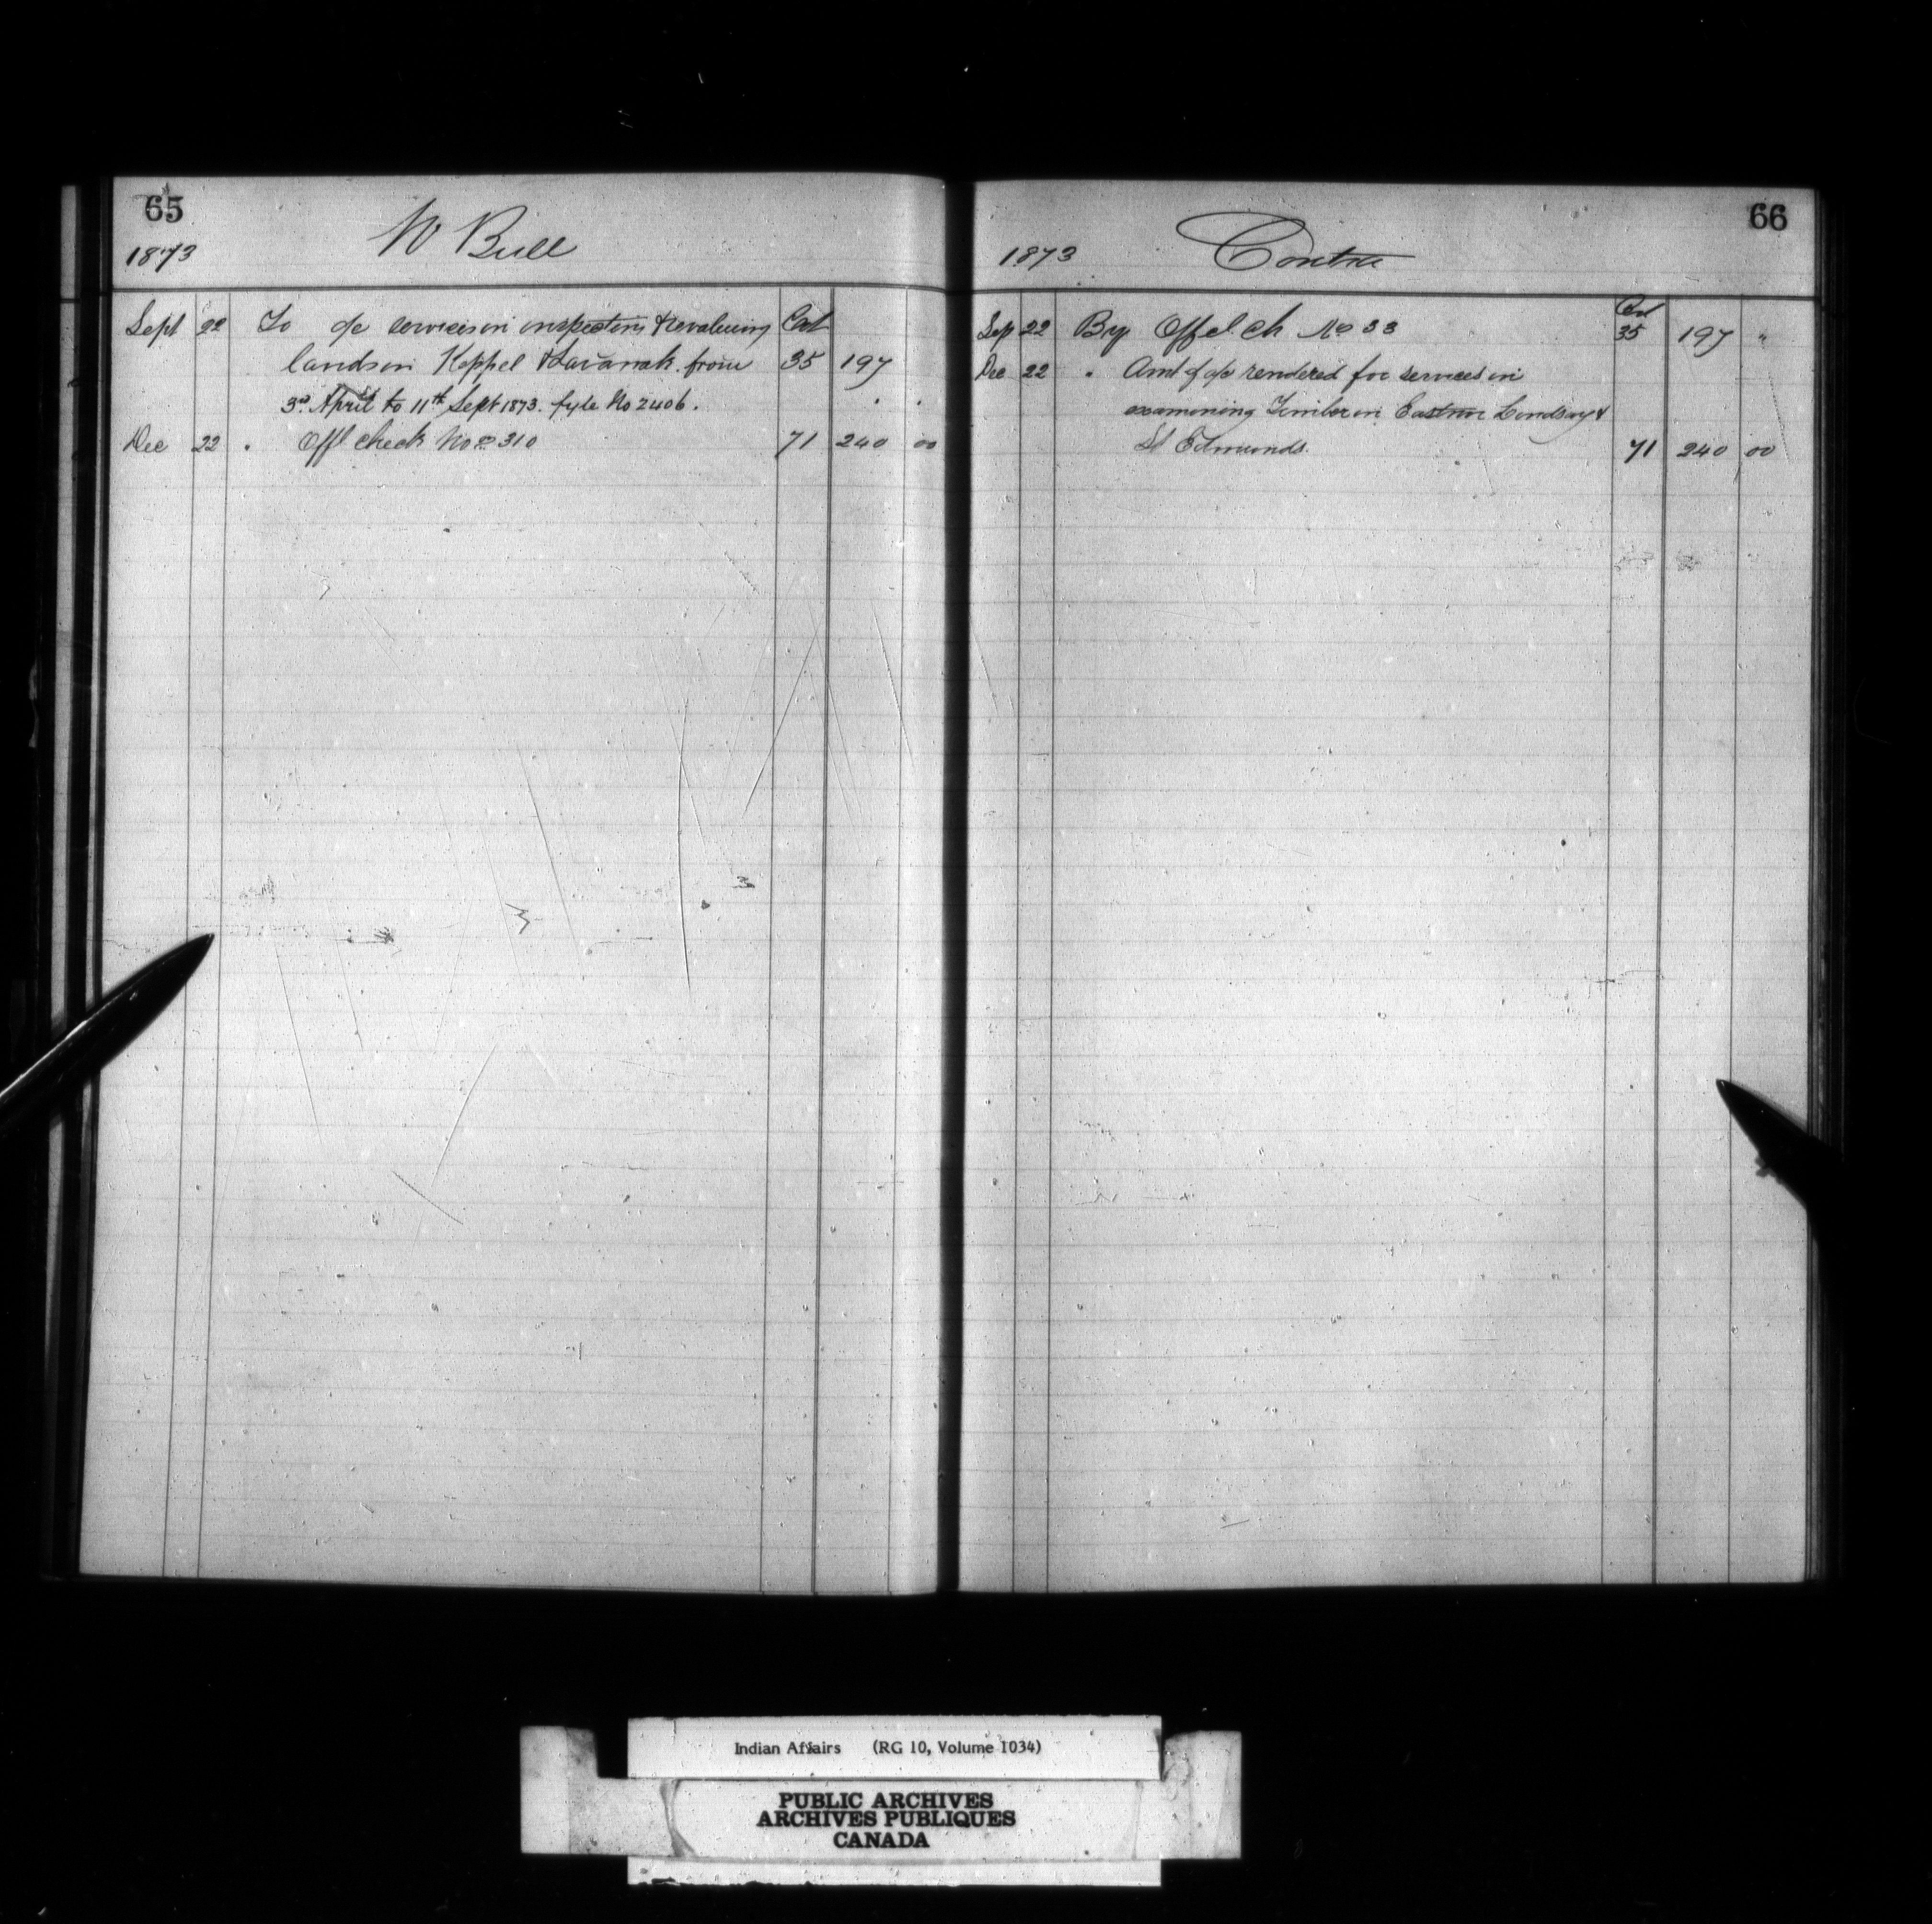 65
1873 W Bull
Sept 22 To a/c services in inspecting & revaluing Cat
lands in Keppel & Saravak from 35 197
3rd April to 11th Sept 1873. fyle No 2406. . .
Dec 22 . Offl check No 310 71 240 00
66
1873 Contra
Sep 22 By Offcl ch No 33 35 197 "
Dec 22 " Amt of a/c rendered for services in
examining Timber in Eastnor Lindsay &
St Edmunds. 71 240 00
Indian Affairs (RG 10, Volume 1034)
PUBLIC ARCHIVES
ARCHIVES PUBLIQUES
CANADA